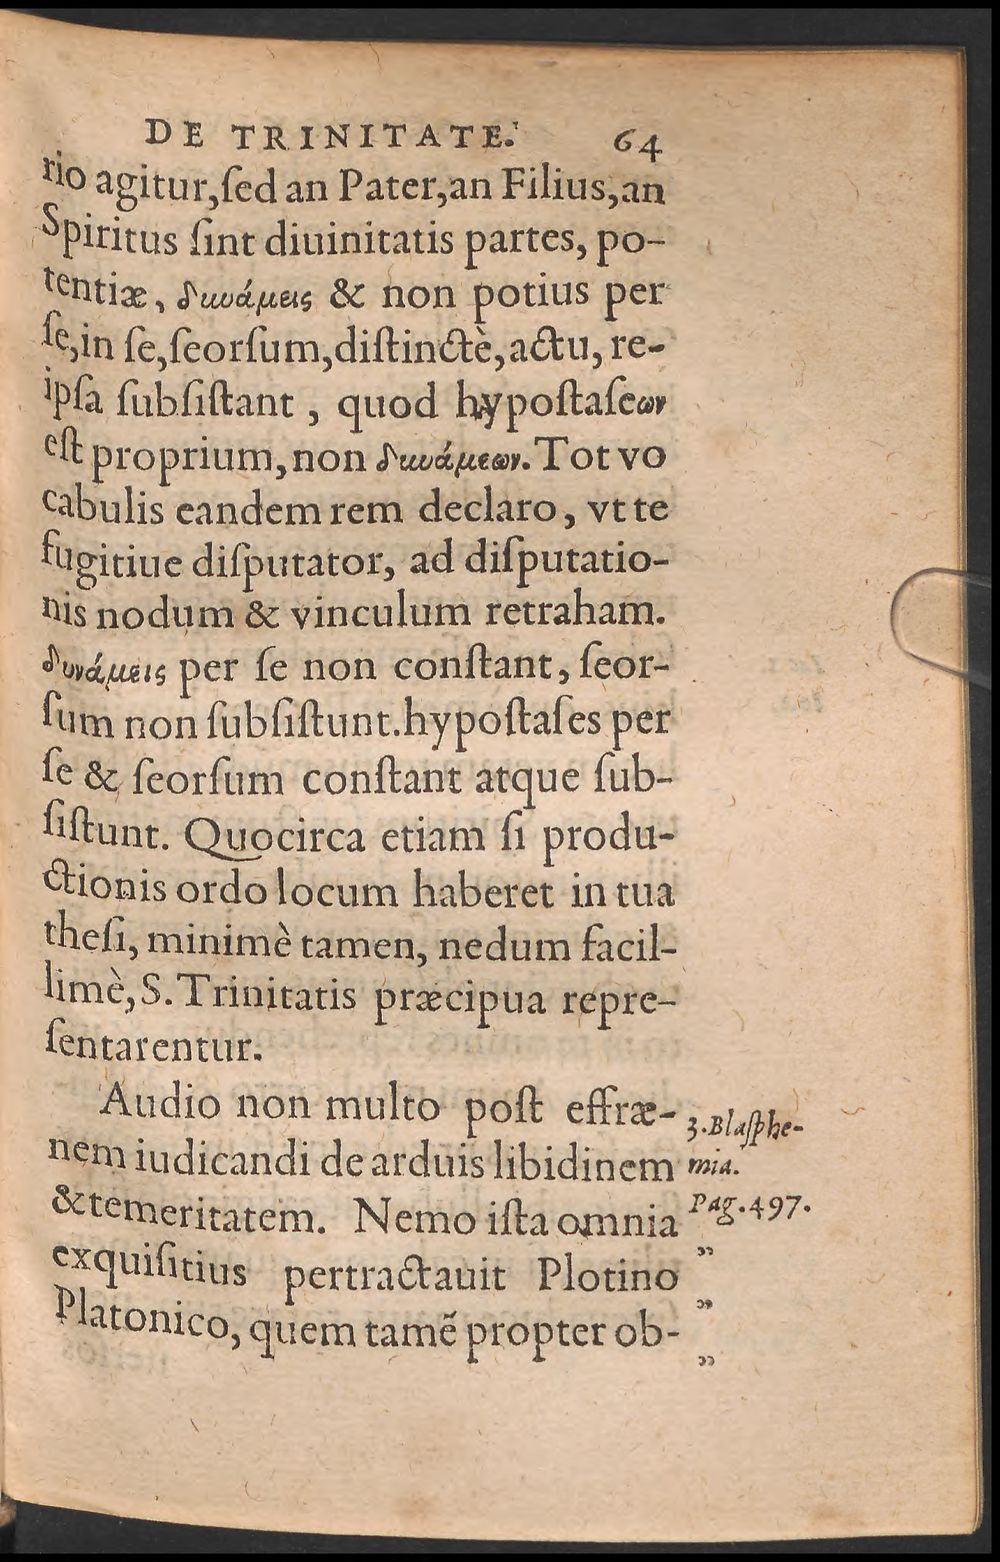 DE TRINITATE. 64
rio agitur, ſed an Pater, an Filius, an
Spiritus ſint diuinitatis partes, po-
tentiæ, δυνάμεις & non potius per
ſe, in ſe, ſeorſum, diſtinctè, actu, re-
ipſa ſubſiſtant, quod hypoſtaſεων
eſt proprium, non δυνάμεων. Tot vo
cabulis eandem rem declaro, vt te
fugitiue diſputator, ad diſputatio-
nis nodum & vinculum retraham.
δυνάμεις per ſe non conſtant, ſeor-
ſum non ſubſiſtunt. hypoſtaſes per
ſe & ſeorſum conſtant atque ſub-
ſiſtunt. Quocirca etiam ſi produ-
ctionis ordo locum haberet in tua
theſi, minimè tamen, nedum facil-
limè, S. Trinitatis præcipua repre-
ſentarentur.
Audio non multo poſt effræ-
nem iudicandi de arduis libidinem
& temeritatem. Nemo iſta omnia
exquiſitius pertractauit Plotino
Platonico, quem tamẽ propter ob-
3. Blaſphe-
mia.
Pag. 497.
"
"
"